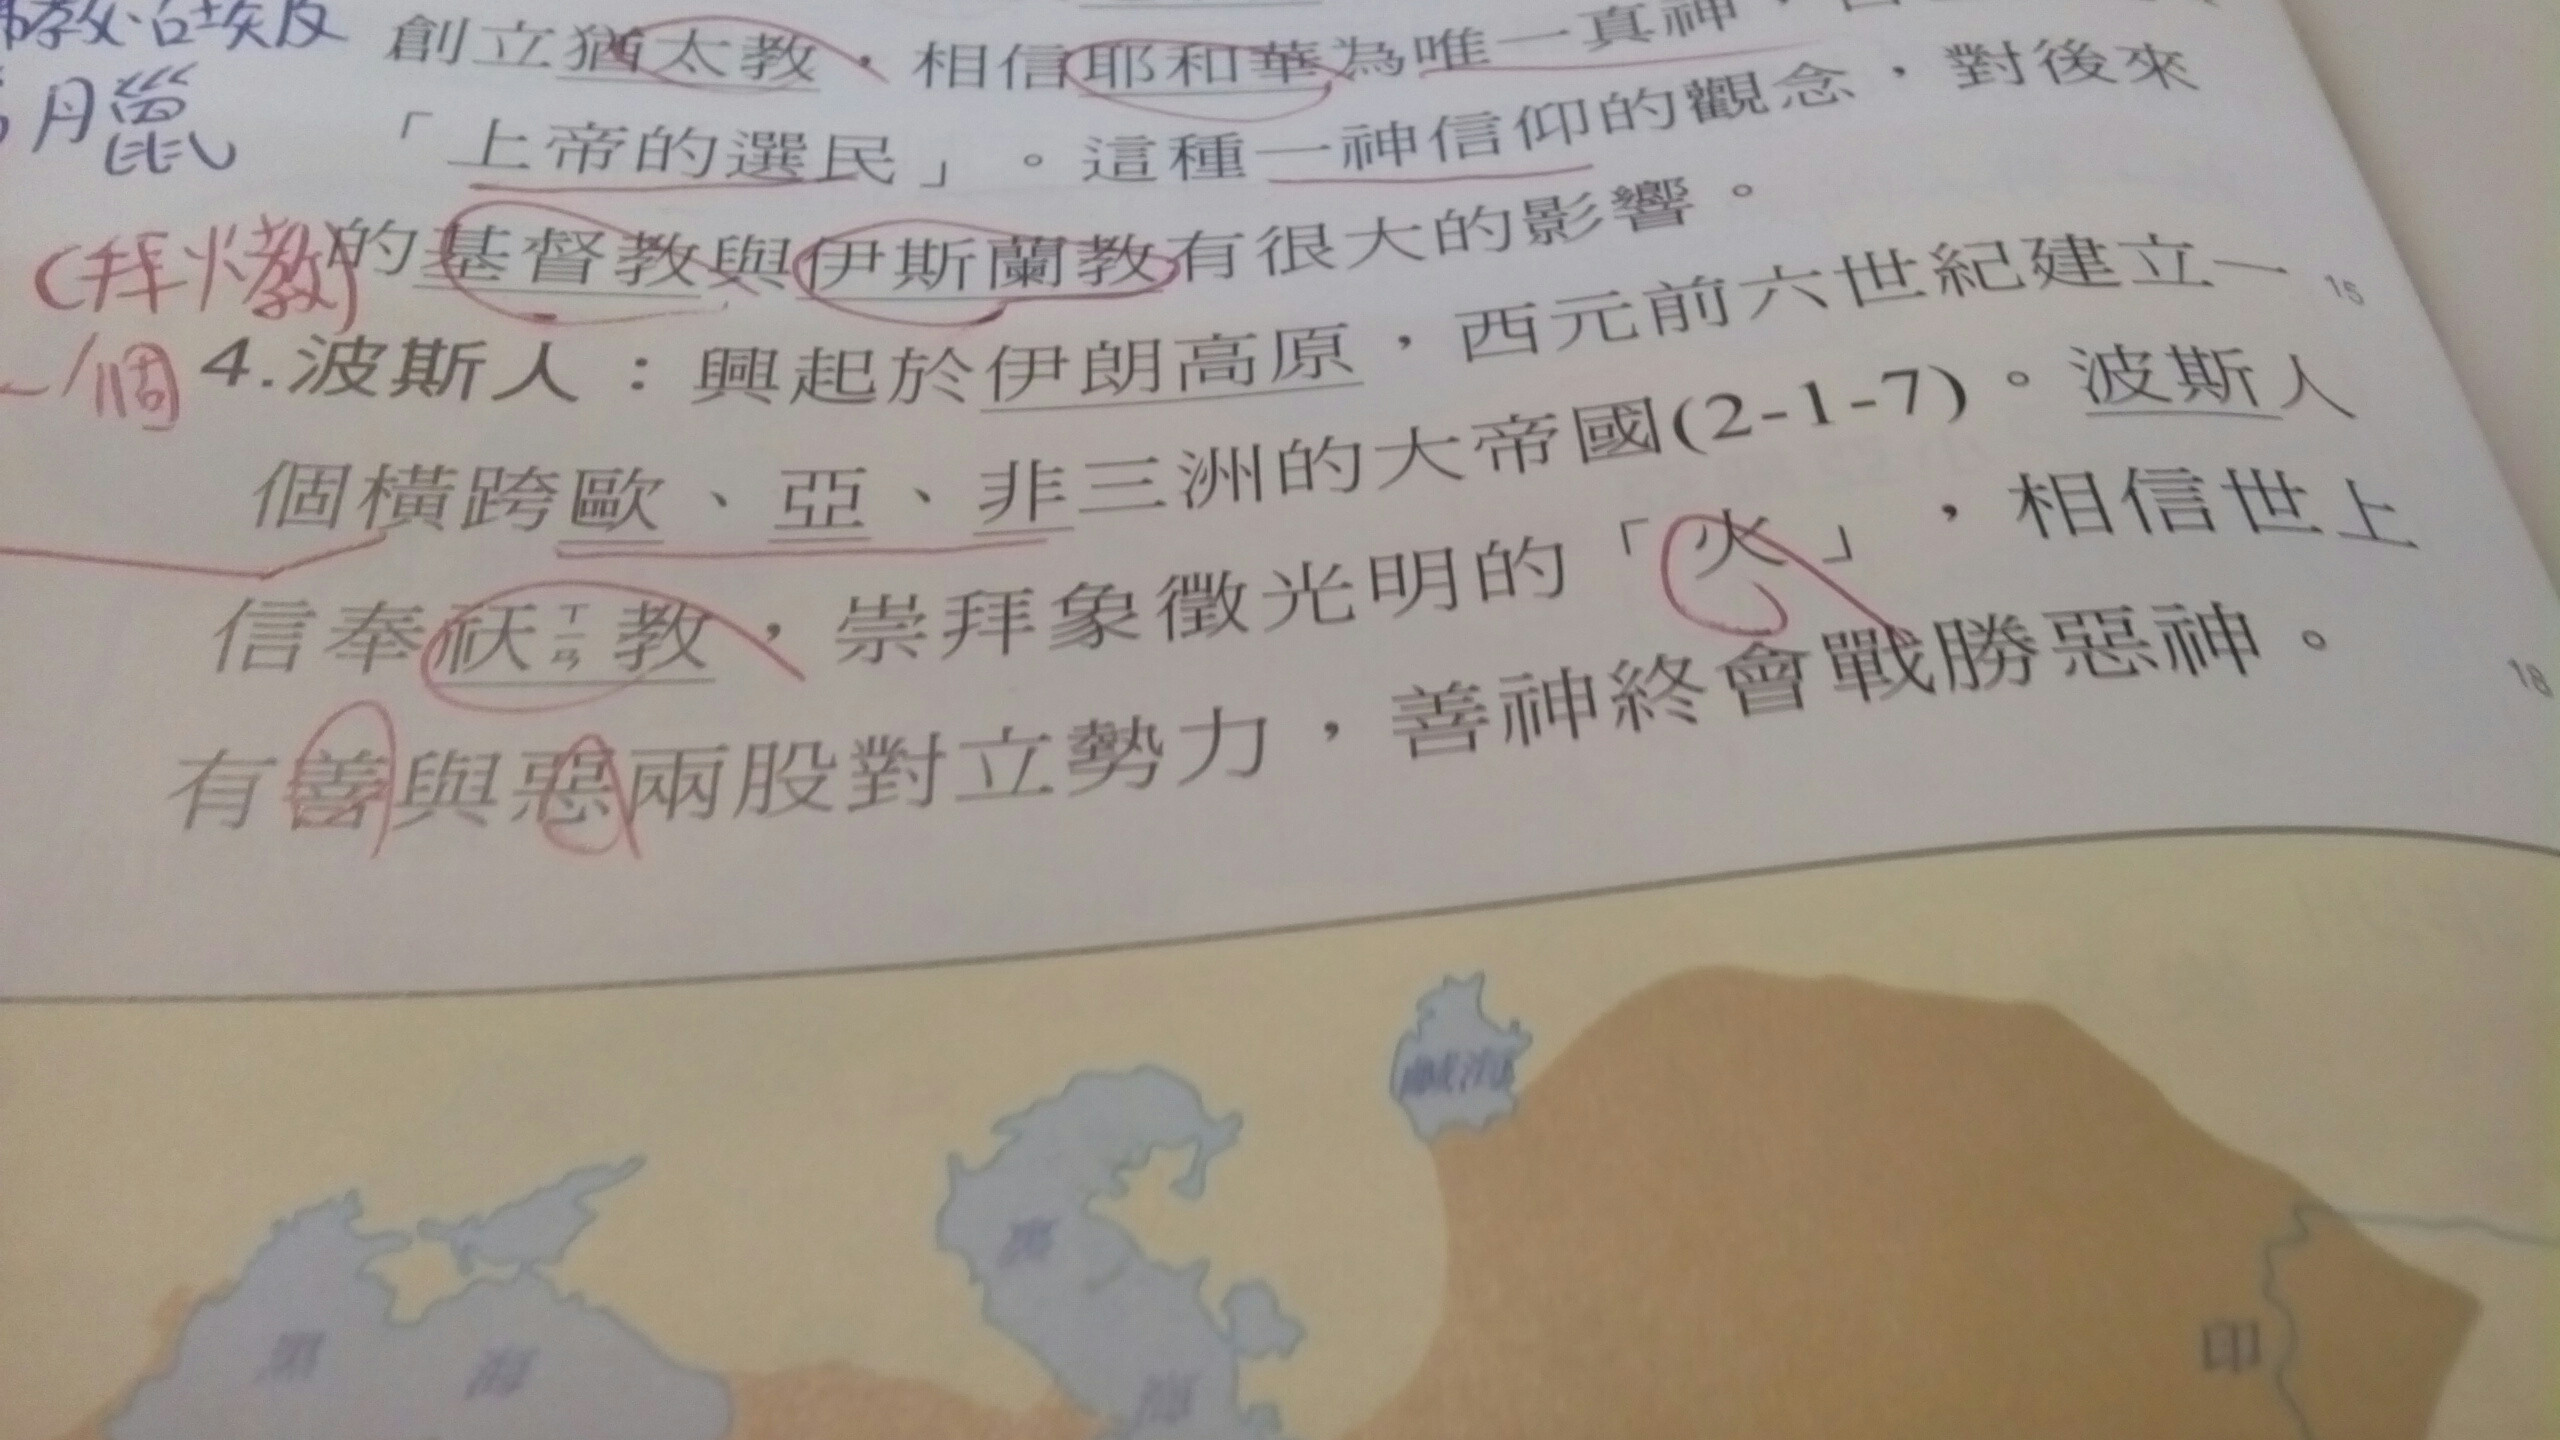 創立猶太教，相信耶和華為唯一真神，
「上帝的選民」。這種一神信仰的觀念，對後來
的基督教與伊斯蘭教有很大的影響。
(拜火教)
15
4.波斯人：興起於伊朗高原，西元前六世紀建立一
個橫跨歐、亞、非三洲的大帝國(2-1-7)。波斯人
信奉祆ㄒㄧㄢ教，崇拜象徵光明的「火」，相信世上
有善與惡兩股對立勢力，善神終會戰勝惡神。
18
個
鹹海
裏
海
黑
海
印